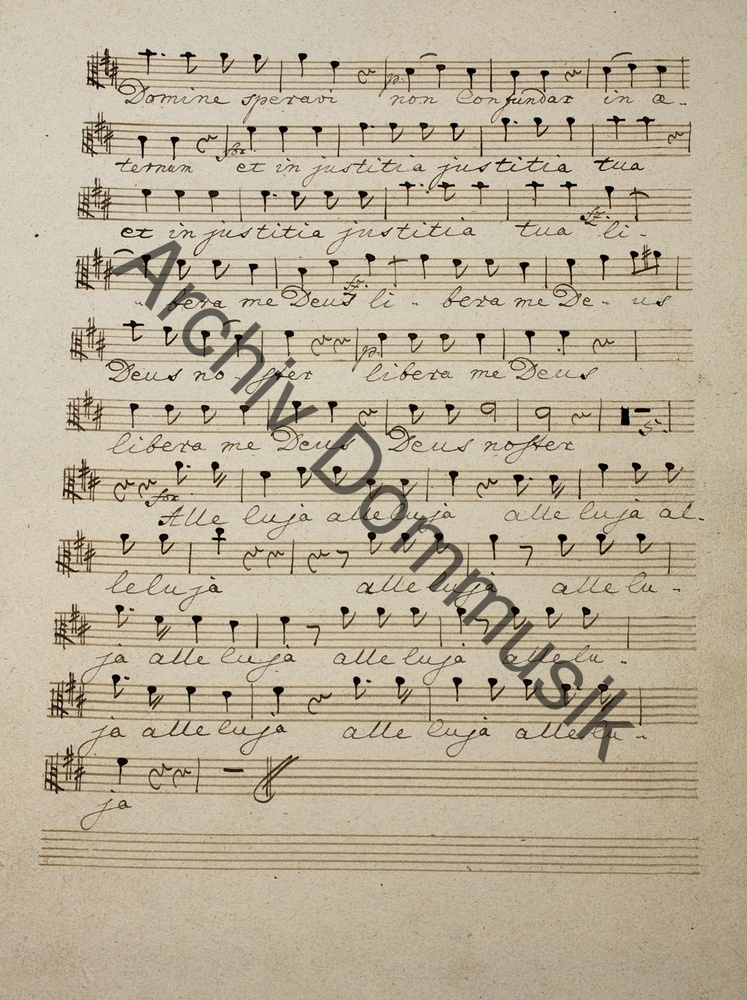 p:
Domine speravi non Confundar in æ-
for
ternum et in justitia justitia tua
fz:
et in justitia justitia tua li-
fz:
- bera me Deus li - bera me De - us
p:
Deus no - ster libera me Deus
libera me Deus Deus noster
5:
for
Alle luja alleluja alle luja al-
leluja alle luja alle lu -
ja alle luja alle luja alle lu -
ja alle luja alle luja alle lu -
ja
Archiv Dommusik